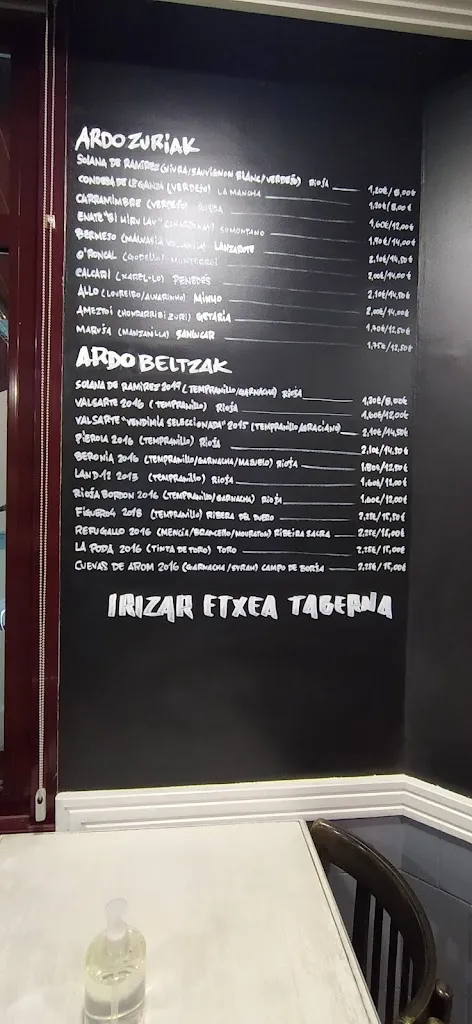 ARDO ZURIAK
SOLANA DE RAMIREZ (VIURA/SAUVIGNON BLANC/VERDEJO) RIOJA 1,20€/8,00€
CONDESA DE LEGANZA (VERDEJO) LA MANCHA 1,20€/8,00€
CARRAMIMBRE (VERDEJO) RUEDA 1,60€/12,00€
ENATE "BI MIRU LAU" (CHARDONNAY) SOMONTANO 1,90€/14,00€
BERMEJO (MALVASIA VOLCANICA) LANZAROTE 2,10€/14,50€
O'RONCAL (GODELLO) MONTERREI 2,00€/14,00€
CALCARI (XAREL-LO) PENEDÉS 2,10€/14,50€
ALLO (LOUREIRO/ALVARINHO) MINHO
AMEZTOI (HONDARRIBI ZURI) GETARIA 1,70€/12,50€
MARUJA (MANZANILLA) SANLUCAR 1,75€/12,50€
ARDO BELTZAK
SOLANA DE RAMIREZ 2019 (TEMPRANILLO/GARNACHA) RIOJA 1,20€/8,00€
VALSARTE 2016 (TEMPRANILLO) RIOJA 1,60€/12,00€
VALSARTE "VENDIMIA SELECCIONADA" 2015 (TEMPRANILLO/GRACIANO) 2,10€/14,50€
PIEROLA 2016 (TEMPRANILLO) RIOJA 2,10€/14,50€
BERONIA 2016 (TEMPRANILLO/GARNACHA/MAZUELO) RIOJA 1,80€/12,50€
LAN D-12 2013 (TEMPRANILLO) RIOJA 1,60€/12,00€
RIOJA BORDON 2016 (TEMPRANILLO/GARNACHA) RIOJA 1,60€/12,00€
FIGUEROA 2018 (TEMPRANILLO) RIBERA DEL DUERO 2,25€/15,50€
REFUGALLO 2016 (MENCIA/BRANCELLO/MOURATON) RIBEIRA SACRA 2,25€/15,00€
LA PODA 2016 (TINTA DE TORO) TORO 2,25€/15,00€
CUEVAS DE AROM 2016 (GARNACHA/SYRAH) CAMPO DE BORJA 2,25€/15,00€
IRIZAR ETXEA TABERNA